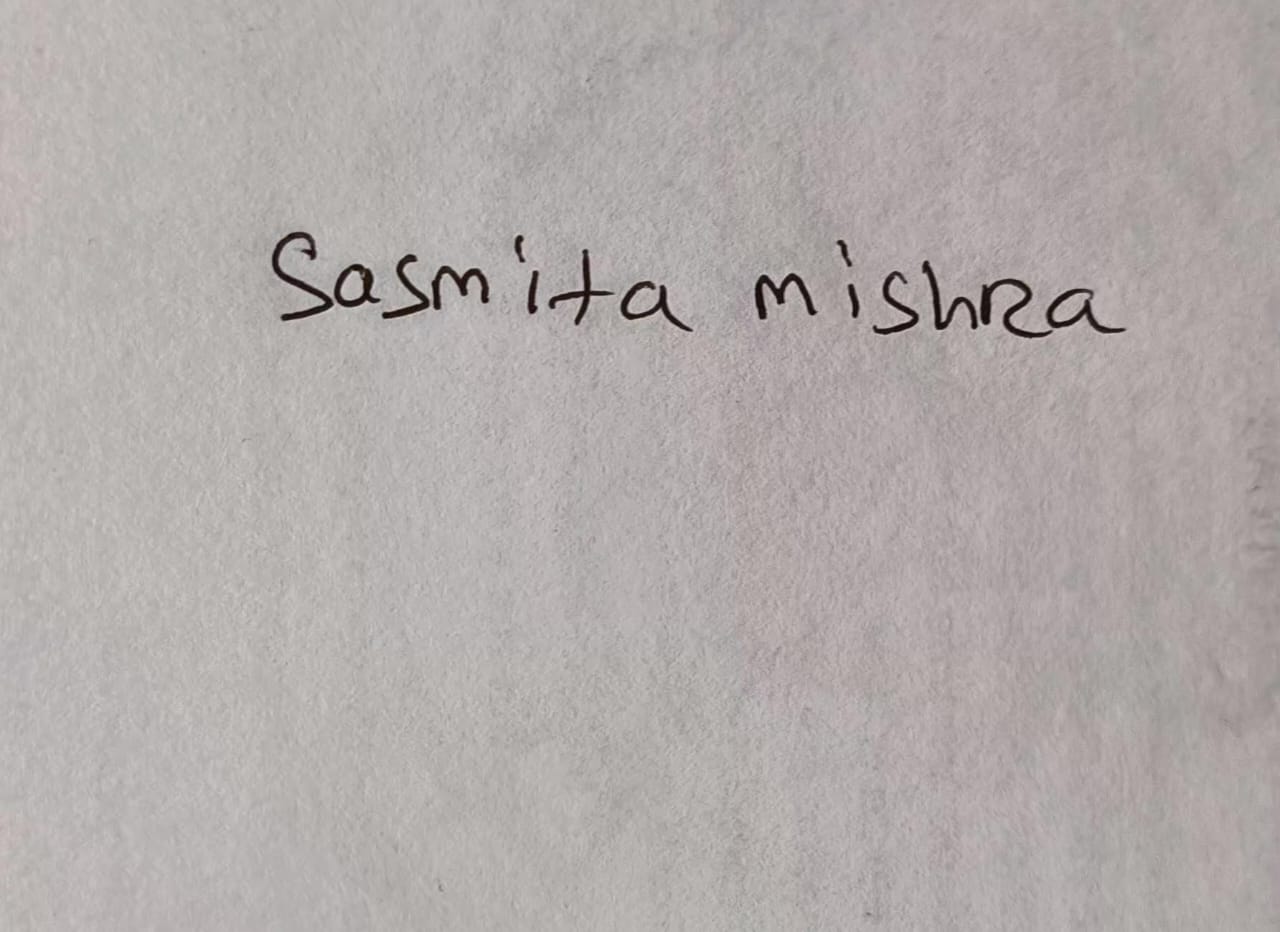 Sasmita mishra